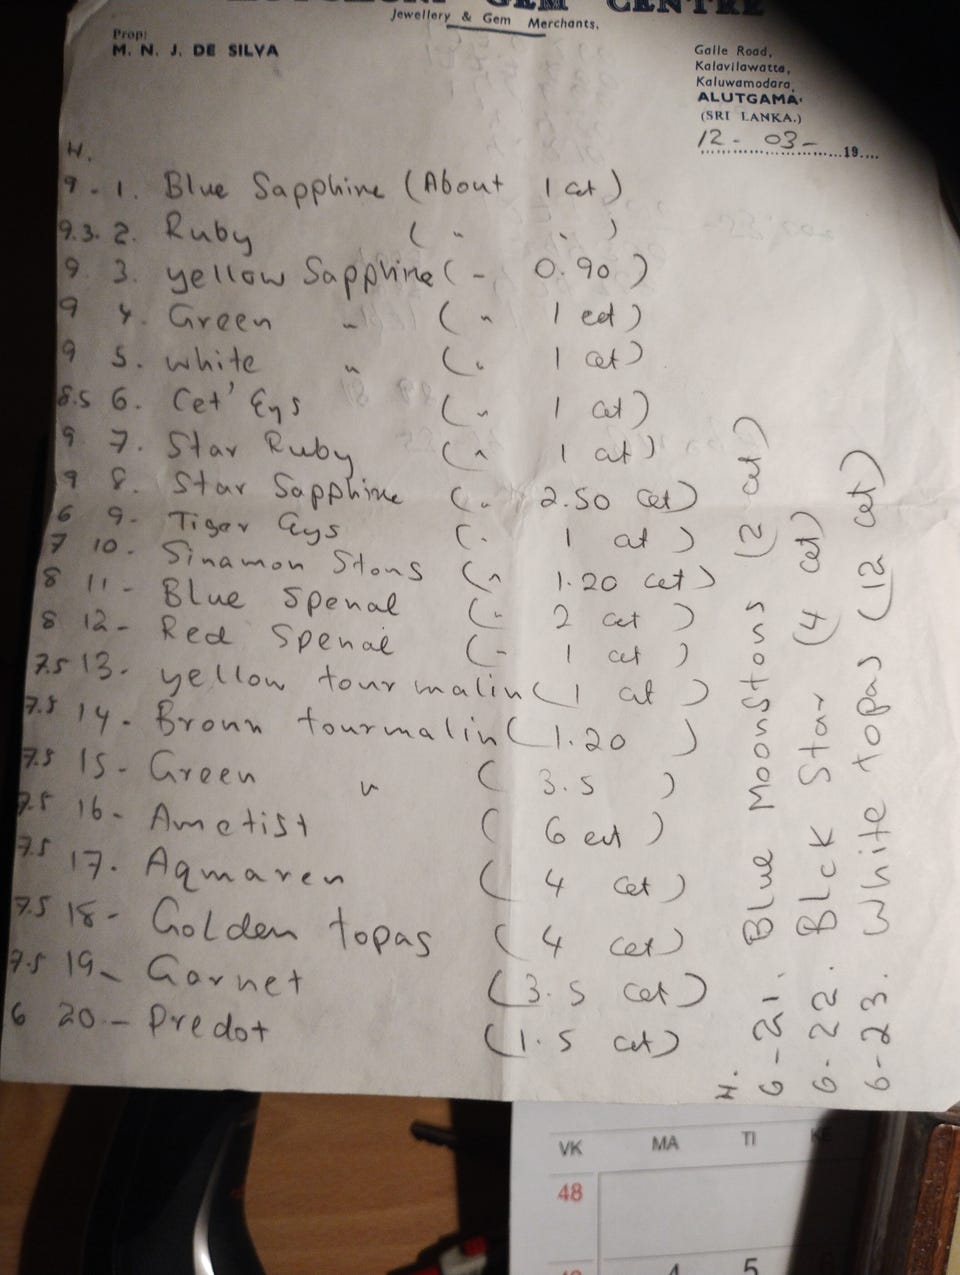 GEM CENTRE
Jewellery & Gem Merchants.
Prop:
M. N. J. DE SILVA
Galle Road,
Kalavilawatta,
Kaluwamodara,
ALUTGAMA.
(SRI LANKA.)
12 - 03 - 19....
H.
9 - 1. Blue Sapphire (About 1 cet)
9.3. 2. Ruby ( " " )
9. 3. yellow Sapphire ( " 0.90 )
9 4. Green " ( " 1 cet )
9 5. White " ( " 1 cet )
8.5 6. Cet' Eys ( " 1 cet )
9 7. Star Ruby ( " 1 cet )
9 8. Star Sapphire ( " 2.50 cet )
6 9. Tiger Eys ( " 1 cet )
7 10. Sinamon Stons ( " 1.20 cet )
8 11 - Blue Spenal ( " 2 cet )
8 12 - Red Spenal ( " 1 cet )
7.5 13 - yellow tourmalin ( 1 cet )
7.5 14 - Bronn tourmalin ( 1.20 )
7.5 15 - Green " ( 3.5 )
7.5 16 - Ametist ( 6 cet )
7.5 17. Aqmaren ( 4 cet )
7.5 18 - Golden topas ( 4 cet )
7.5 19 - Garnet (3.5 cet)
6 20 - Predot (1.5 cet)
H.
6 - 21. Blue Moonstons (2 cet)
6 - 22. Blck Star (4 cet)
6 - 23. White topas (12 cet)
VK MA TI KE
48
49 4 5 6